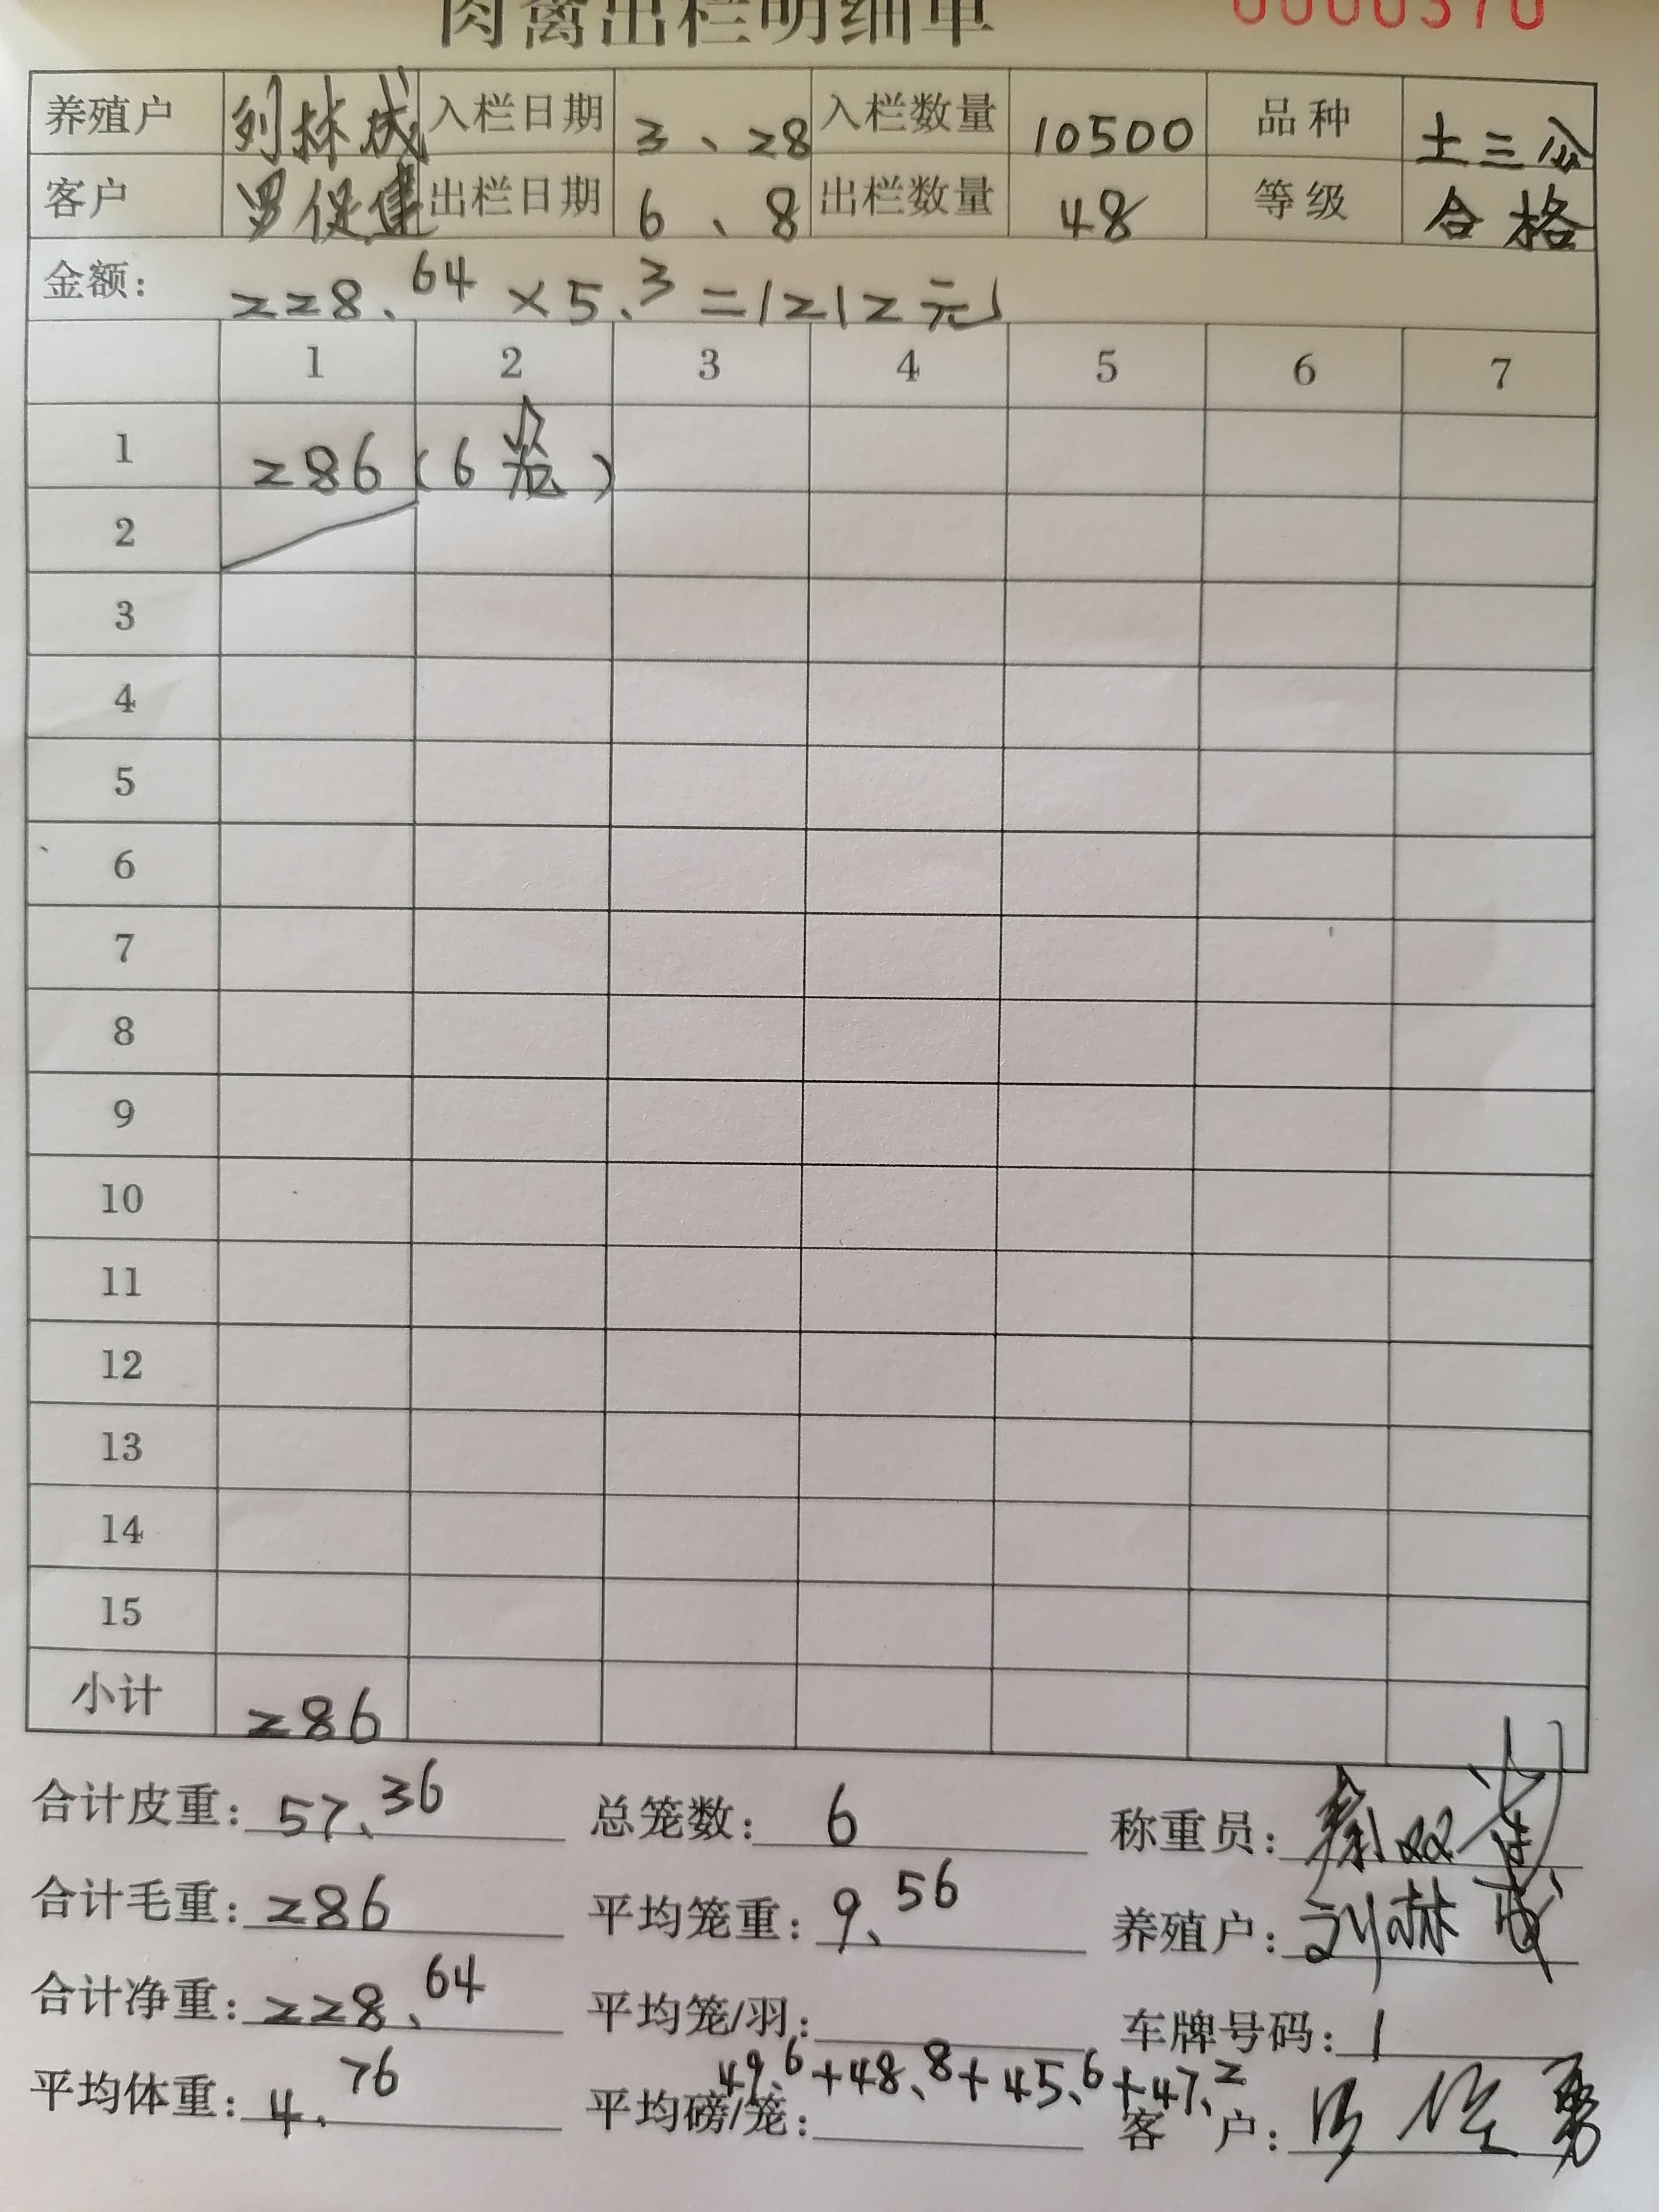 肉禽出栏明细单 0000370
养殖户 列林成 入栏日期 3、28 入栏数量 10500 品种 土三公
客户 罗促建 出栏日期 6、8 出栏数量 48 等级 合格
金额: 228.64×5.3=1212元
1 2 3 4 5 6 7
1 286(6笼)
2
3
4
5
6
7
8
9
10
11
12
13
14
15
小计 286
合计皮重: 57.36 总笼数: 6 称重员:
合计毛重: 286 平均笼重: 9.56 养殖户: 刘林成
合计净重: 228.64 平均笼/羽: 车牌号码: 1
49.6+48.8+45.6+47.2
平均体重: 4.76 平均磅/笼: 客户: